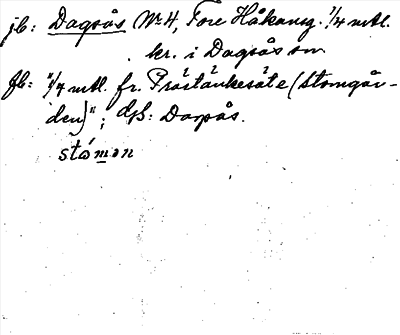 jb: Dagsås No 4, Tore Håkansg. 1/4 mtl.
kr. i Dagsås sn
fb: "1/4 mtl. fr. Prästänkesäte (Stomgår-
den)"; dß: Dagsås.
stómən